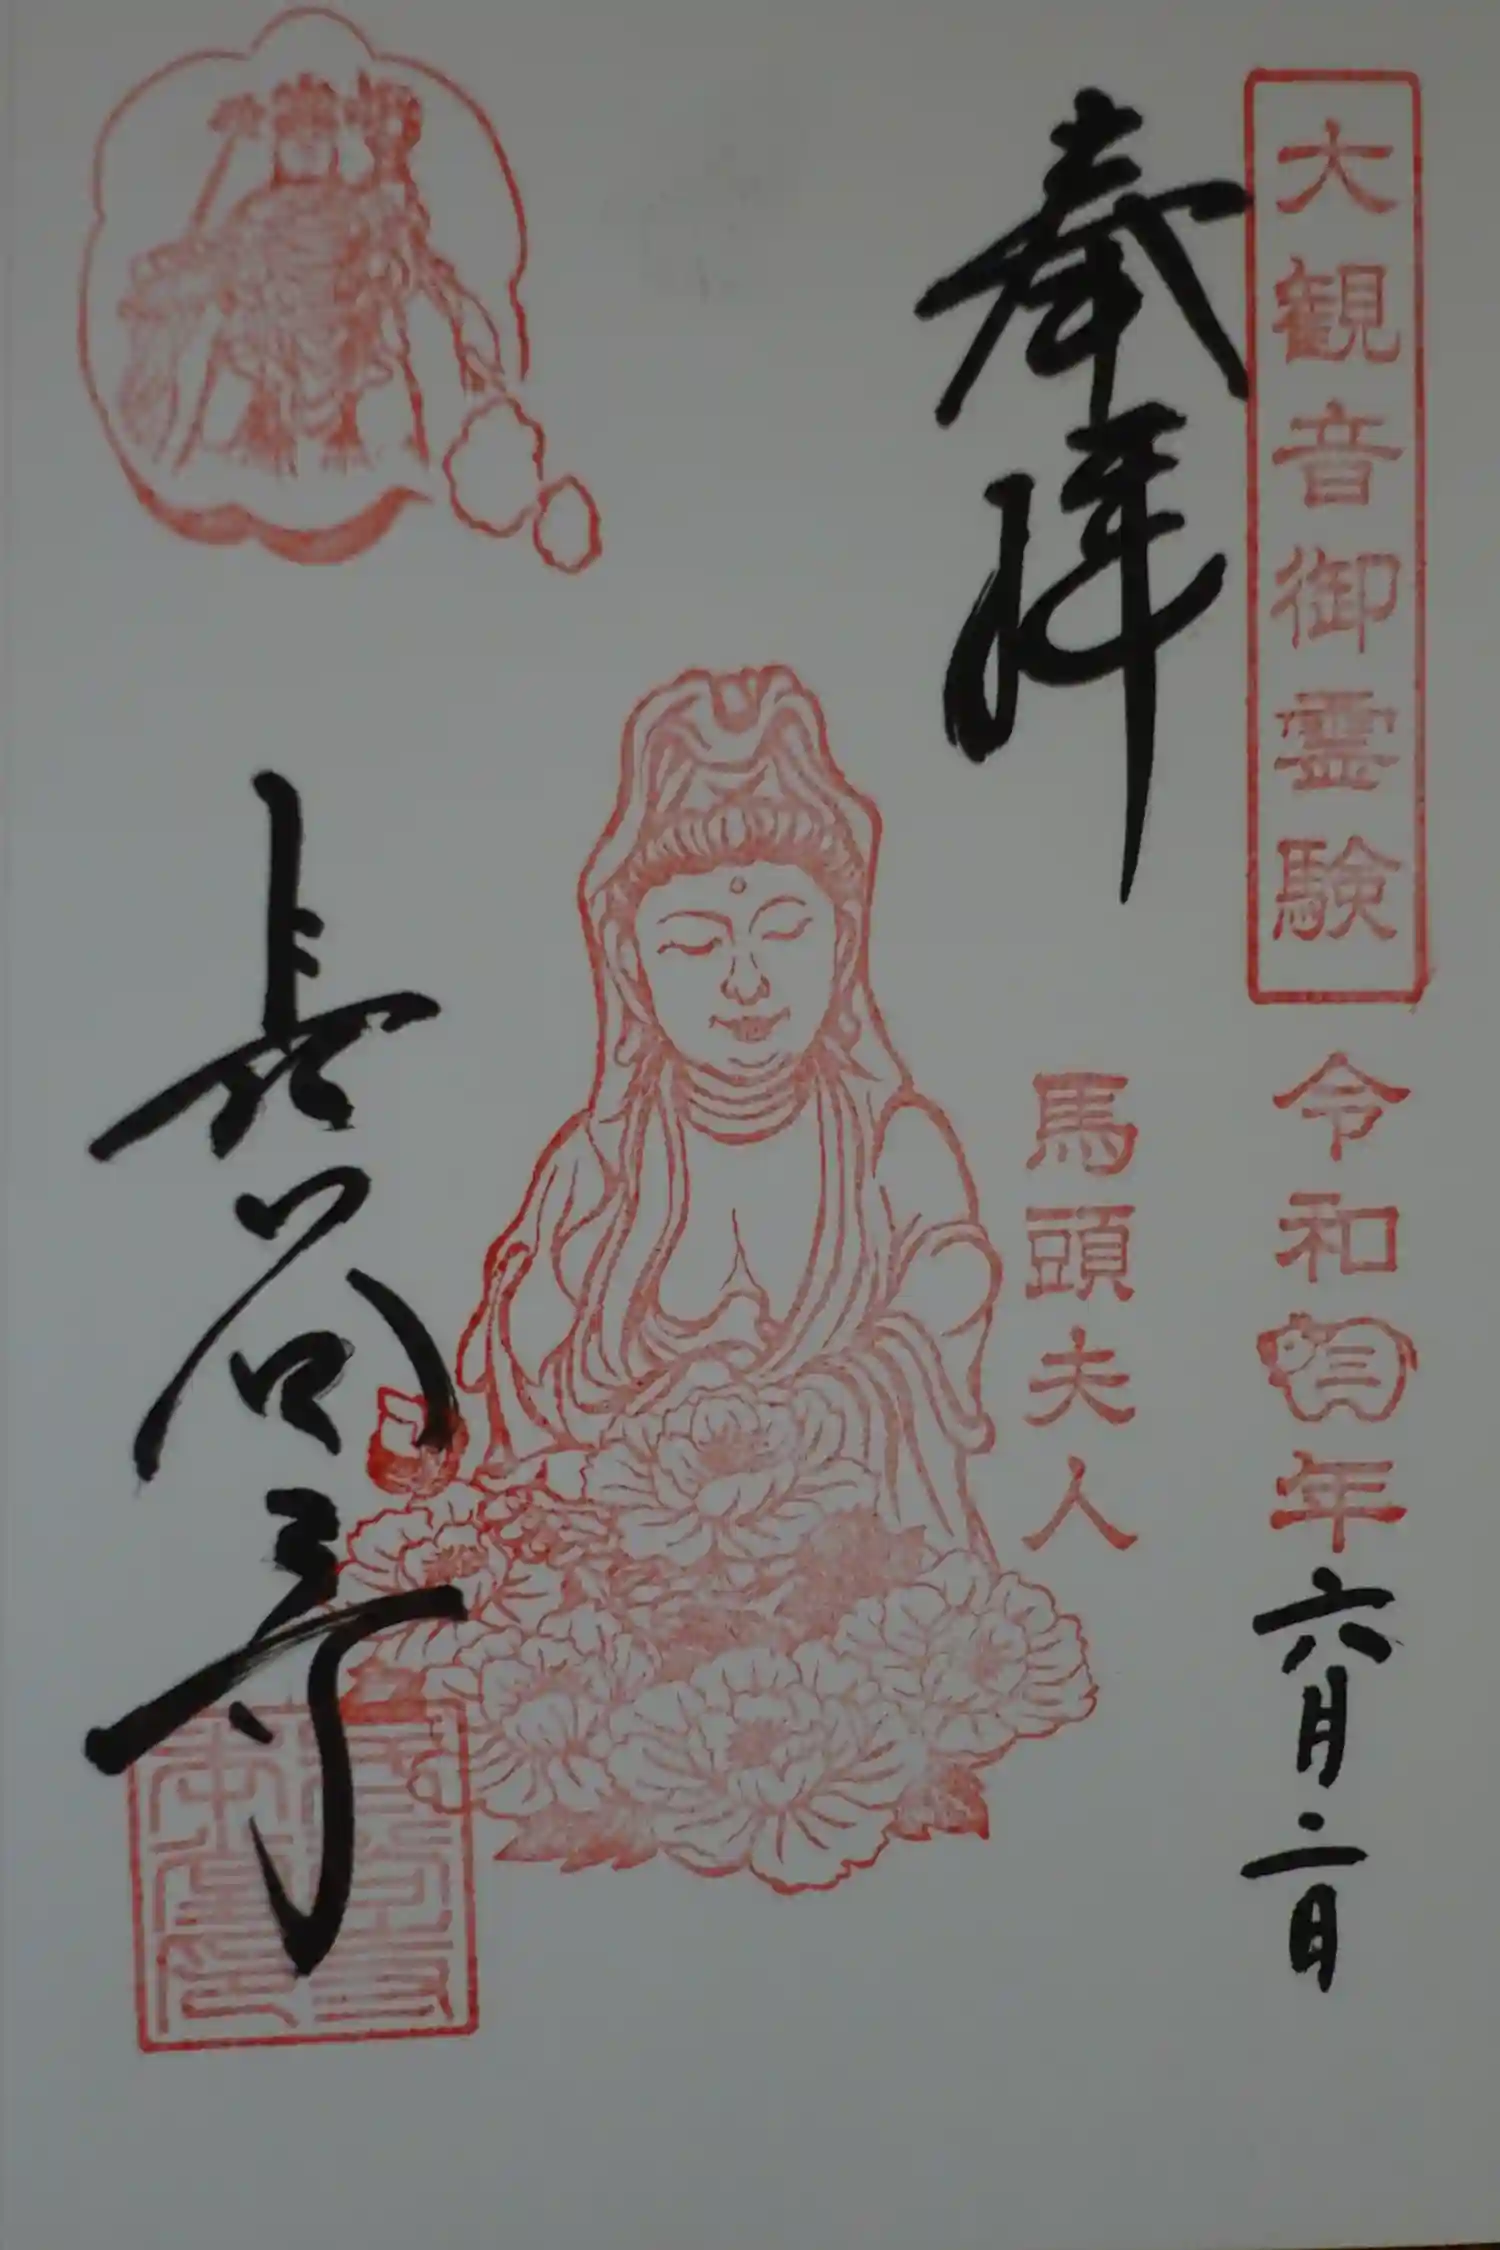 大観音御霊験
令和三年六月二日
奉拝
馬頭夫人
長谷寺